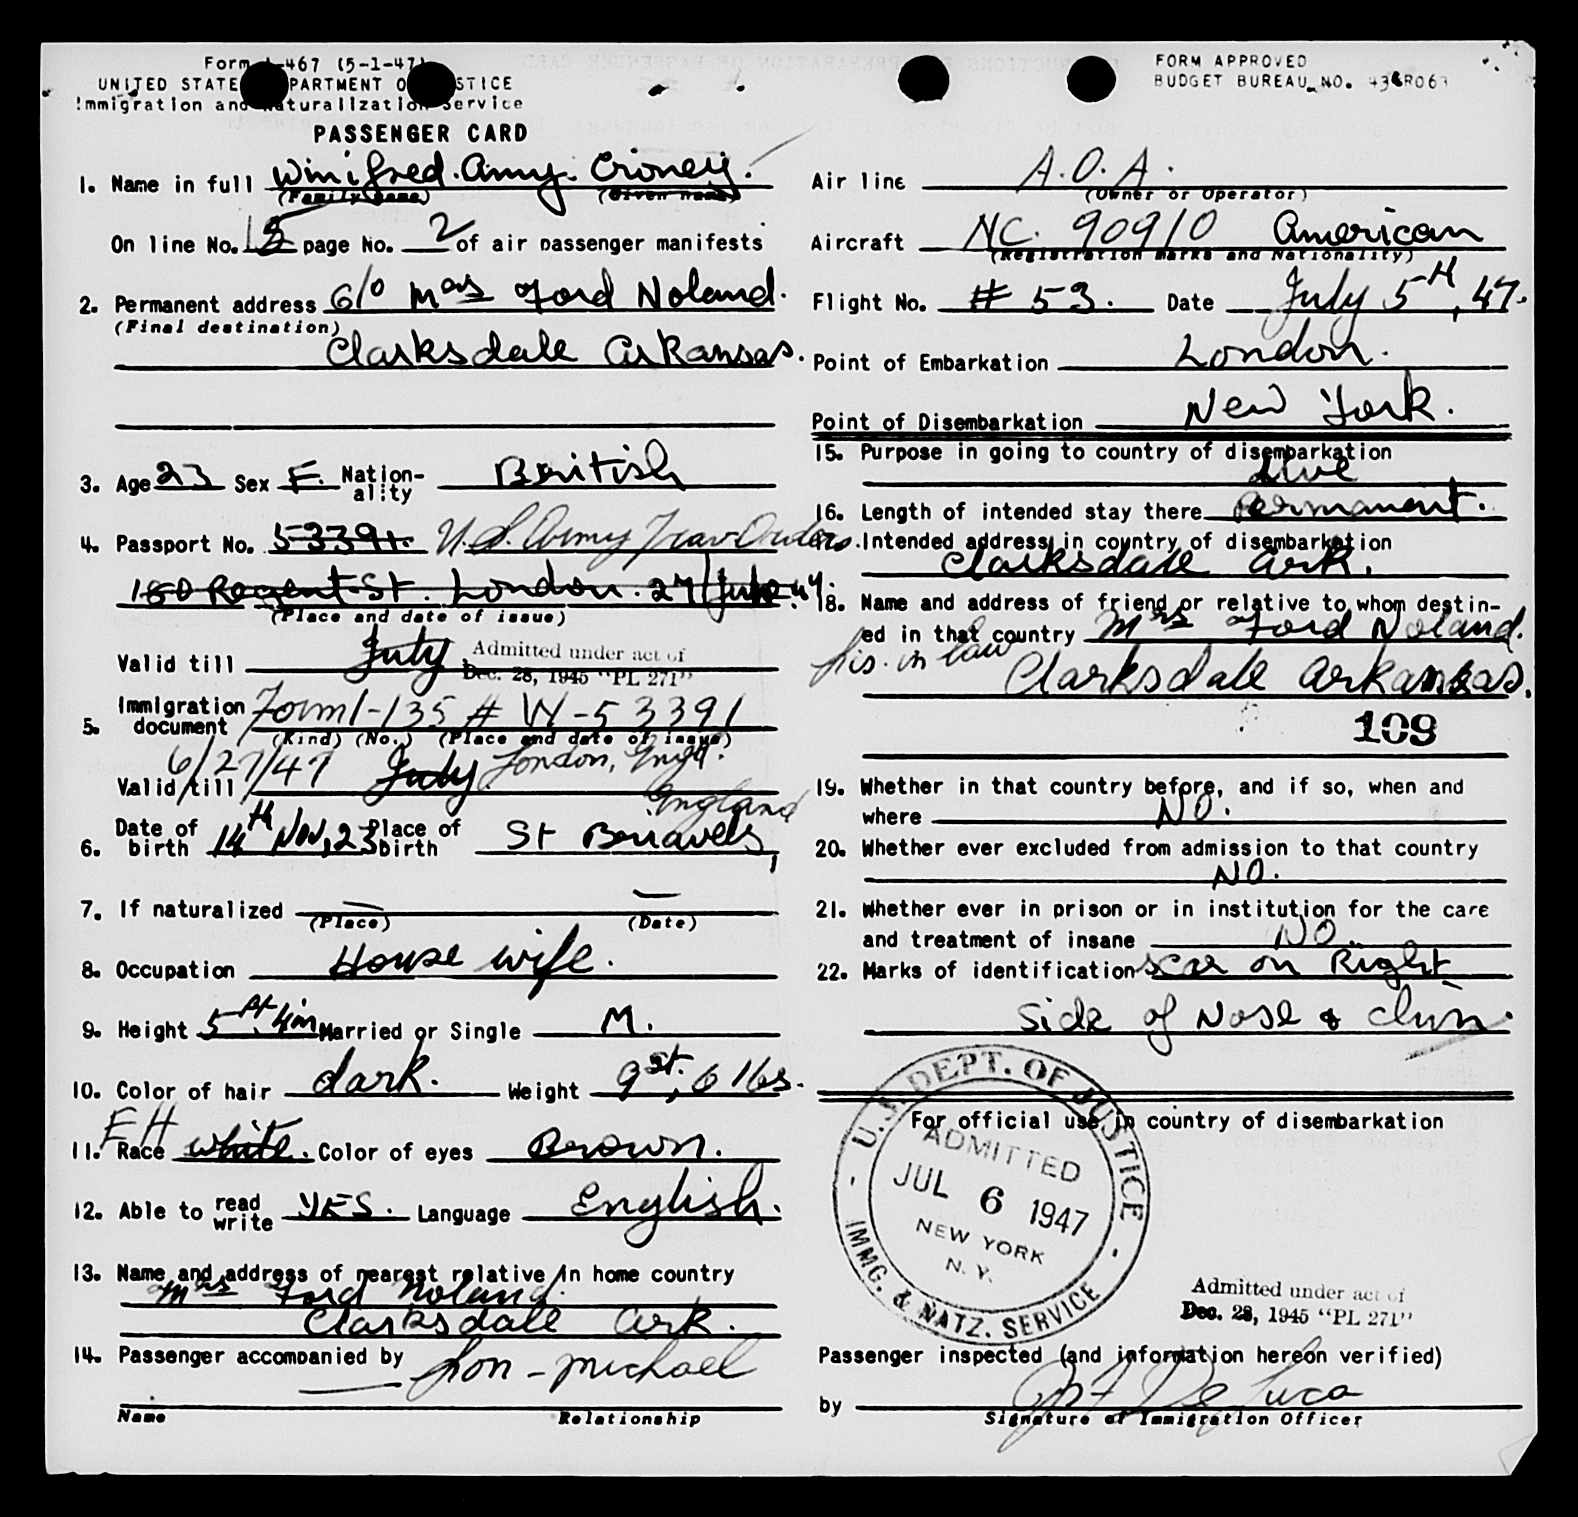 Form I-467 (5-1-47)
UNITED STATES DEPARTMENT OF JUSTICE
Immigration and Naturalization Service
PASSENGER CARD
1. Name in full Winifred. Amy. Croney.
(Family name) (Given name)
On line No. 15 page No. 2 of air passenger manifests
2. Permanent address c/o Mrs Ford Noland.
(Final destination)
Clarksdale Arkansas.
3. Age 23 Sex F. Nation-ality British
4. Passport No. 53391. U.S. Army Trav Orders.
180 Regent St. London. 27/June 47.
(Place and date of issue)
Valid till July
Admitted under act of
Dec. 28, 1945 "PL 271"
5. Immigration document Form I-135 # W-53391
(Kind) (No.) (Place and date of issue)
6/27/47 July London, Engl.
Valid till
England
6. Date of birth 14th Nov, 23 Place of birth St Briavels,
7. If naturalized — —
(Place) (Date)
8. Occupation House wife.
9. Height 5 ft. 4in Married or Single M.
10. Color of hair dark. Weight 9 st, 6 lbs.
EH
11. Race white. Color of eyes Brown.
12. Able to read write YES. Language English.
13. Name and address of nearest relative in home country
Mrs Ford Noland.
Clarksdale Ark.
14. Passenger accompanied by Son - Michael
Name Relationship
FORM APPROVED
BUDGET BUREAU NO. 43-R063
Air line A.O.A.
(Owner or Operator)
Aircraft NC. 90910 American
(Registration marks and Nationality)
Flight No. # 53. Date July 5th, 47.
Point of Embarkation London.
Point of Disembarkation New York.
15. Purpose in going to country of disembarkation
Live
16. Length of intended stay there Permanent.
17. Intended address in country of disembarkation
Clarksdale Ark.
18. Name and address of friend or relative to whom destin-
ed in that country Mrs Ford Noland.
sis. in law
Clarksdale Arkansas.
109
19. Whether in that country before, and if so, when and
where NO.
20. Whether ever excluded from admission to that country
NO.
21. Whether ever in prison or in institution for the care
and treatment of insane NO.
22. Marks of identification Scar on Right
Side of Nose & chin.
For official use in country of disembarkation
U.S. DEPT. OF JUSTICE
ADMITTED
JUL 6 1947
NEW YORK
N.Y.
IMMG. & NATZ. SERVICE
Admitted under act of
Dec. 28, 1945 "PL 271"
Passenger inspected (and information hereon verified)
by De Luca
Signature of Immigration Officer